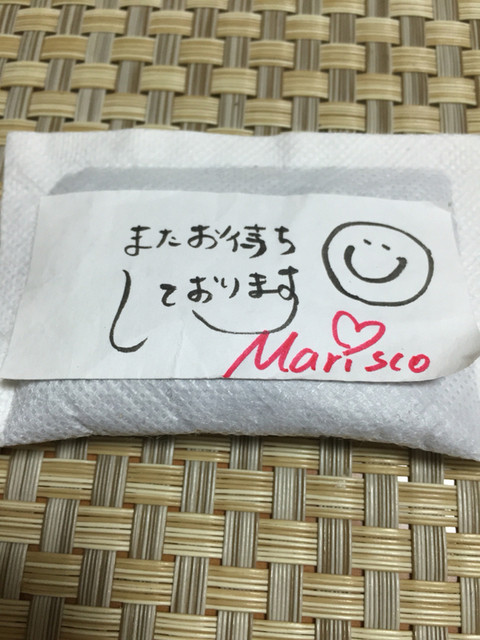 またお待ち
しております
Marisco